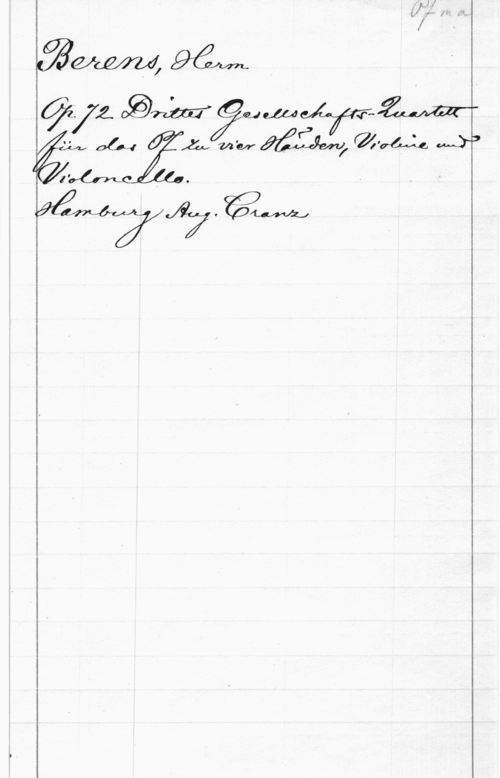 Pf m a
Berens, Herm.
Op. 72. Drittes Gesellschafts-Quartett
für das Pf. zu vier Händen, Violine und
Violoncello.
Hamburg, Aug. Cranz